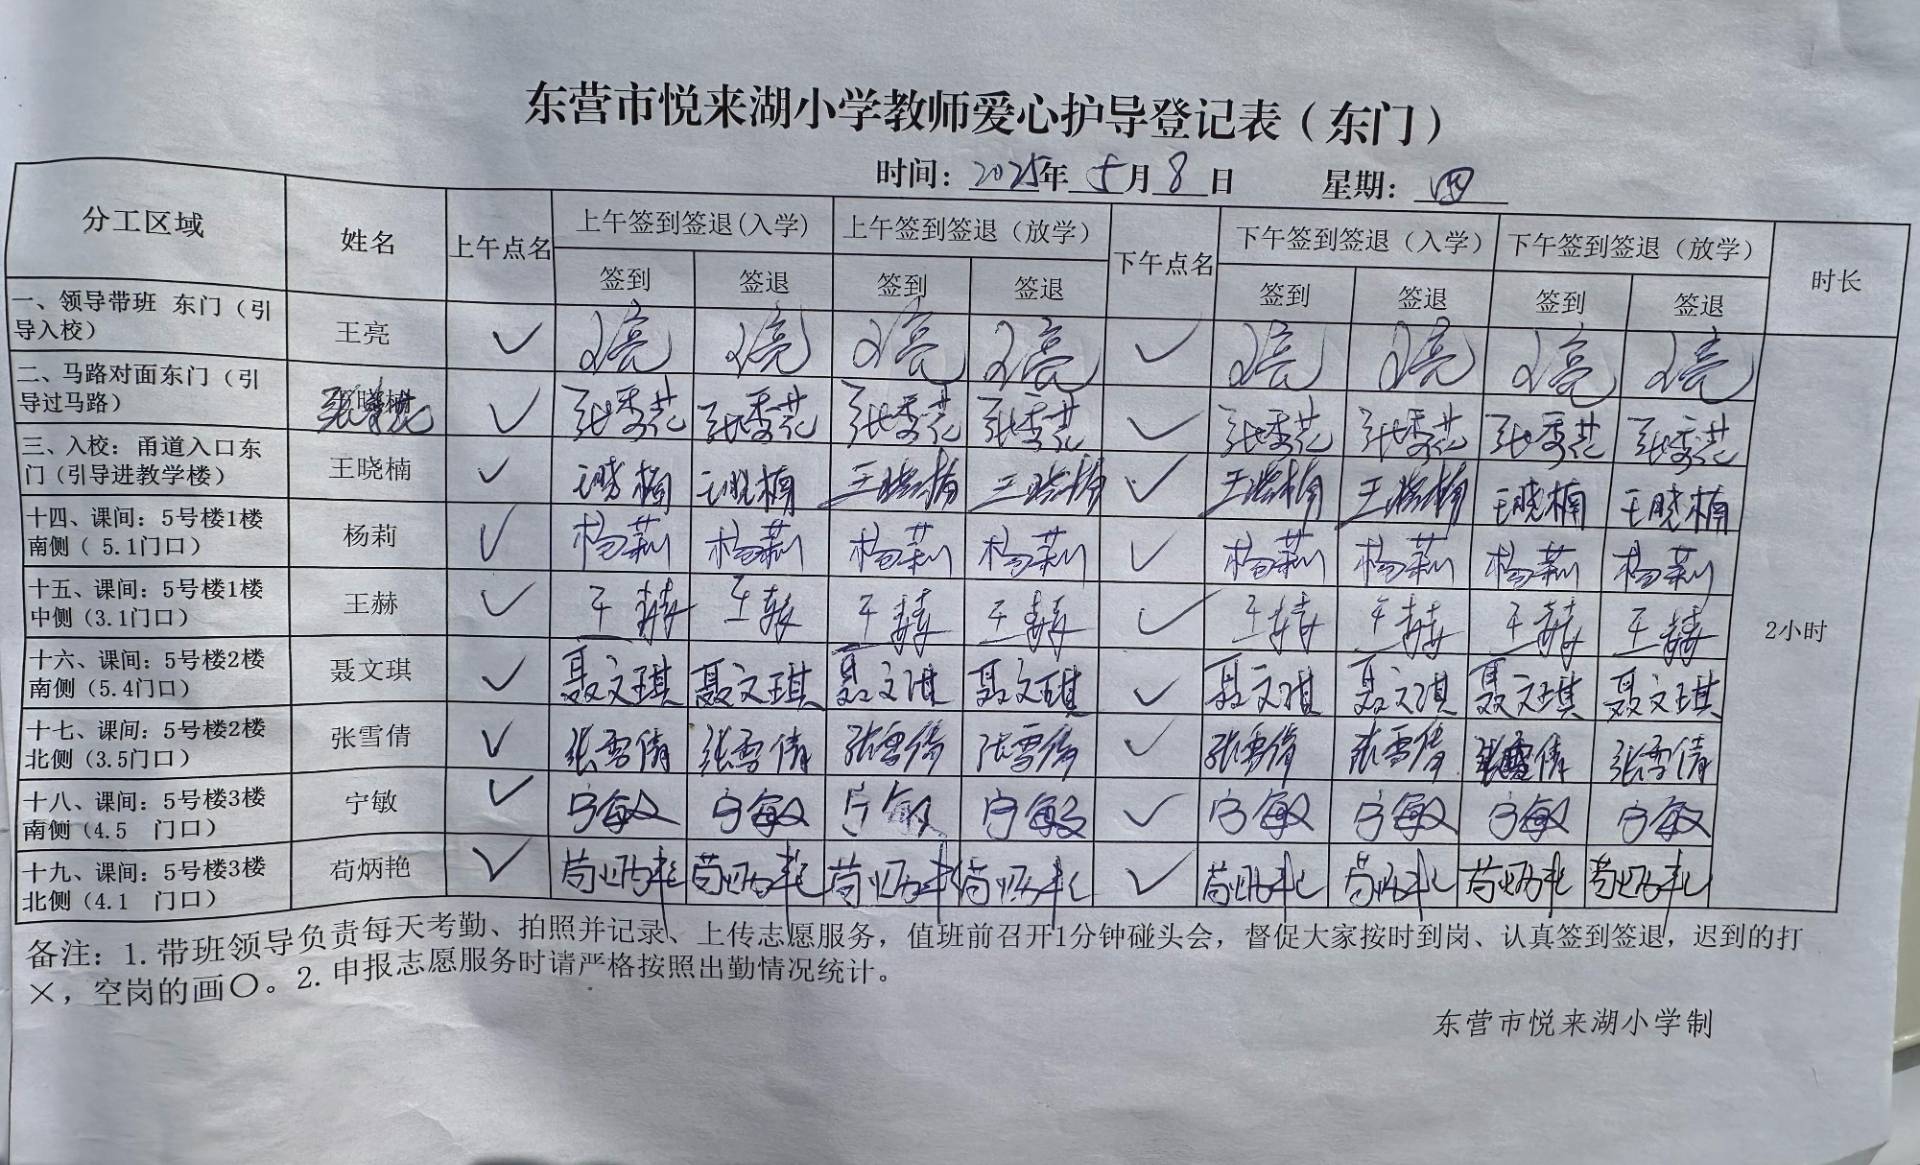 东营市悦来湖小学教师爱心护导登记表（东门）
时间：2025年 5月 8日 星期：四
分工区域 姓名 上午点名 上午签到签退(入学) 上午签到签退（放学） 下午点名 下午签到签退（入学） 下午签到签退（放学） 时长
签到 签退 签到 签退 签到 签退 签到 签退
一、领导带班 东门（引
导入校） 王亮 ✓ 王亮 王亮 王亮 王亮 ✓ 王亮 王亮 王亮 王亮
二、马路对面东门（引
导过马路） 张秀花 ✓ 张秀花 张秀花 张秀花 张秀花 ✓ 张秀花 张秀花 张秀花 张秀花
三、入校：甬道入口东
门(引导进教学楼) 王晓楠 ✓ 王晓楠 王晓楠 王晓楠 王晓楠 ✓ 王晓楠 王晓楠 王晓楠 王晓楠
十四、课间：5号楼1楼
南侧（ 5.1门口） 杨莉 ✓ 杨莉 杨莉 杨莉 杨莉 ✓ 杨莉 杨莉 杨莉 杨莉
十五、课间：5号楼1楼
中侧(3.1门口) 王赫 ✓ 王赫 王赫 王赫 王赫 ✓ 王赫 王赫 王赫 王赫
2小时
十六、课间：5号楼2楼
南侧(5.4门口) 聂文琪 ✓ 聂文琪 聂文琪 聂文琪 聂文琪 ✓ 聂文琪 聂文琪 聂文琪 聂文琪
十七、课间：5号楼2楼
北侧(3.5门口) 张雪倩 ✓ 张雪倩 张雪倩 张雪倩 张雪倩 ✓ 张雪倩 张雪倩 张雪倩 张雪倩
十八、课间：5号楼3楼
南侧(4.5 门口) 宁敏 ✓ 宁敏 宁敏 宁敏 宁敏 ✓ 宁敏 宁敏 宁敏 宁敏
十九、课间：5号楼3楼
北侧(4.1 门口) 苟炳艳 ✓ 苟炳艳 苟炳艳 苟炳艳 苟炳艳 ✓ 苟炳艳 苟炳艳 苟炳艳 苟炳艳
备注：1.带班领导负责每天考勤、拍照并记录、上传志愿服务，值班前召开1分钟碰头会，督促大家按时到岗、认真签到签退，迟到的打
×，空岗的画〇。2.申报志愿服务时请严格按照出勤情况统计。
东营市悦来湖小学制